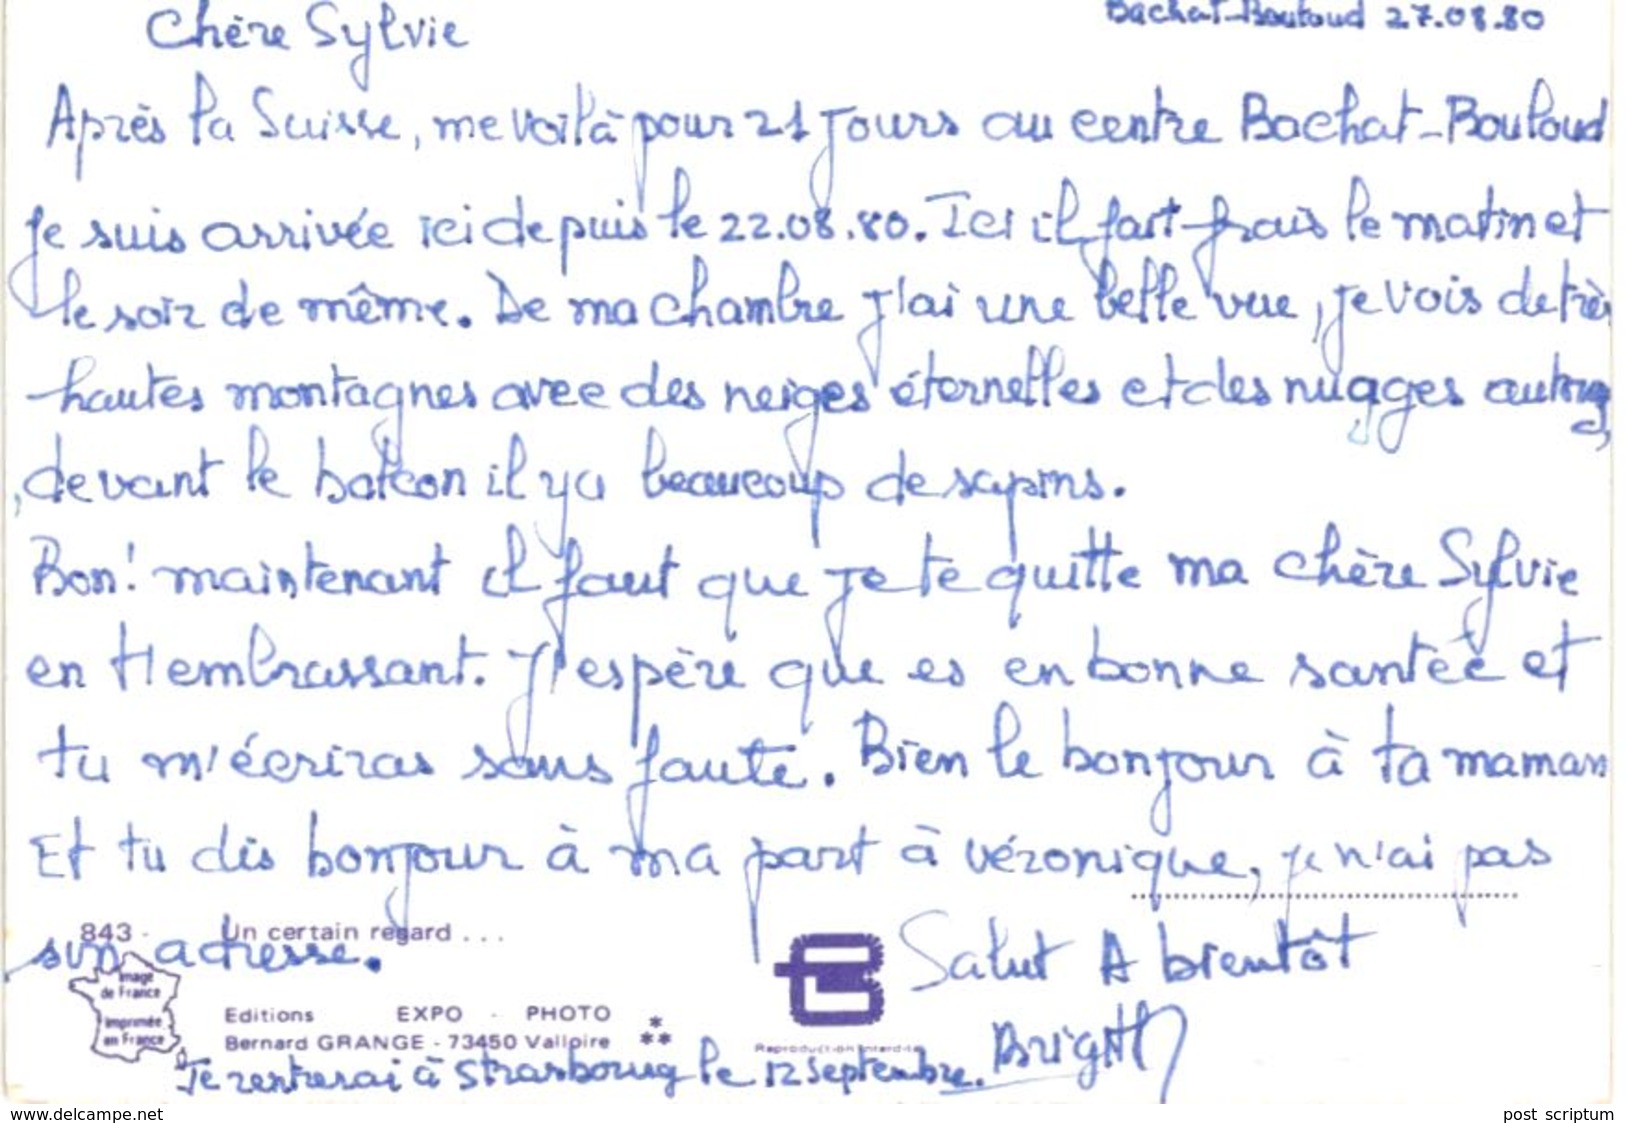 Bachat-Bouloud 27.08.80
Chère Sylvie
Après la Suisse, me voilà pour 21 jours au centre Bachat-Bouloud
je suis arrivée ici depuis le 22.08.80. Ici il fait frais le matin et
le soir de même. De ma chambre j'ai une belle vue, je vois de très
hautes montagnes avec des neiges éternelles et des nuages autour,
devant le balcon il y a beaucoup de sapins.
Bon! maintenant il faut que je te quitte ma chère Sylvie
en t'embrassant. J'espère que es en bonne santée et
tu m'écriras sans faute. Bien le bonjour à ta maman
Et tu dis bonjour à ma part à véronique, je n'ai pas
sin adresse.
Salut A bientôt
Brigitt
Je rentrerai à Strasbourg le 12 Septembre.
843 - Un certain regard ...
Image
de France
Imprimée
en France
Editions EXPO - PHOTO
Bernard GRANGE - 73450 Valloire
Reproduction interdite
www.delcampe.net
post scriptum